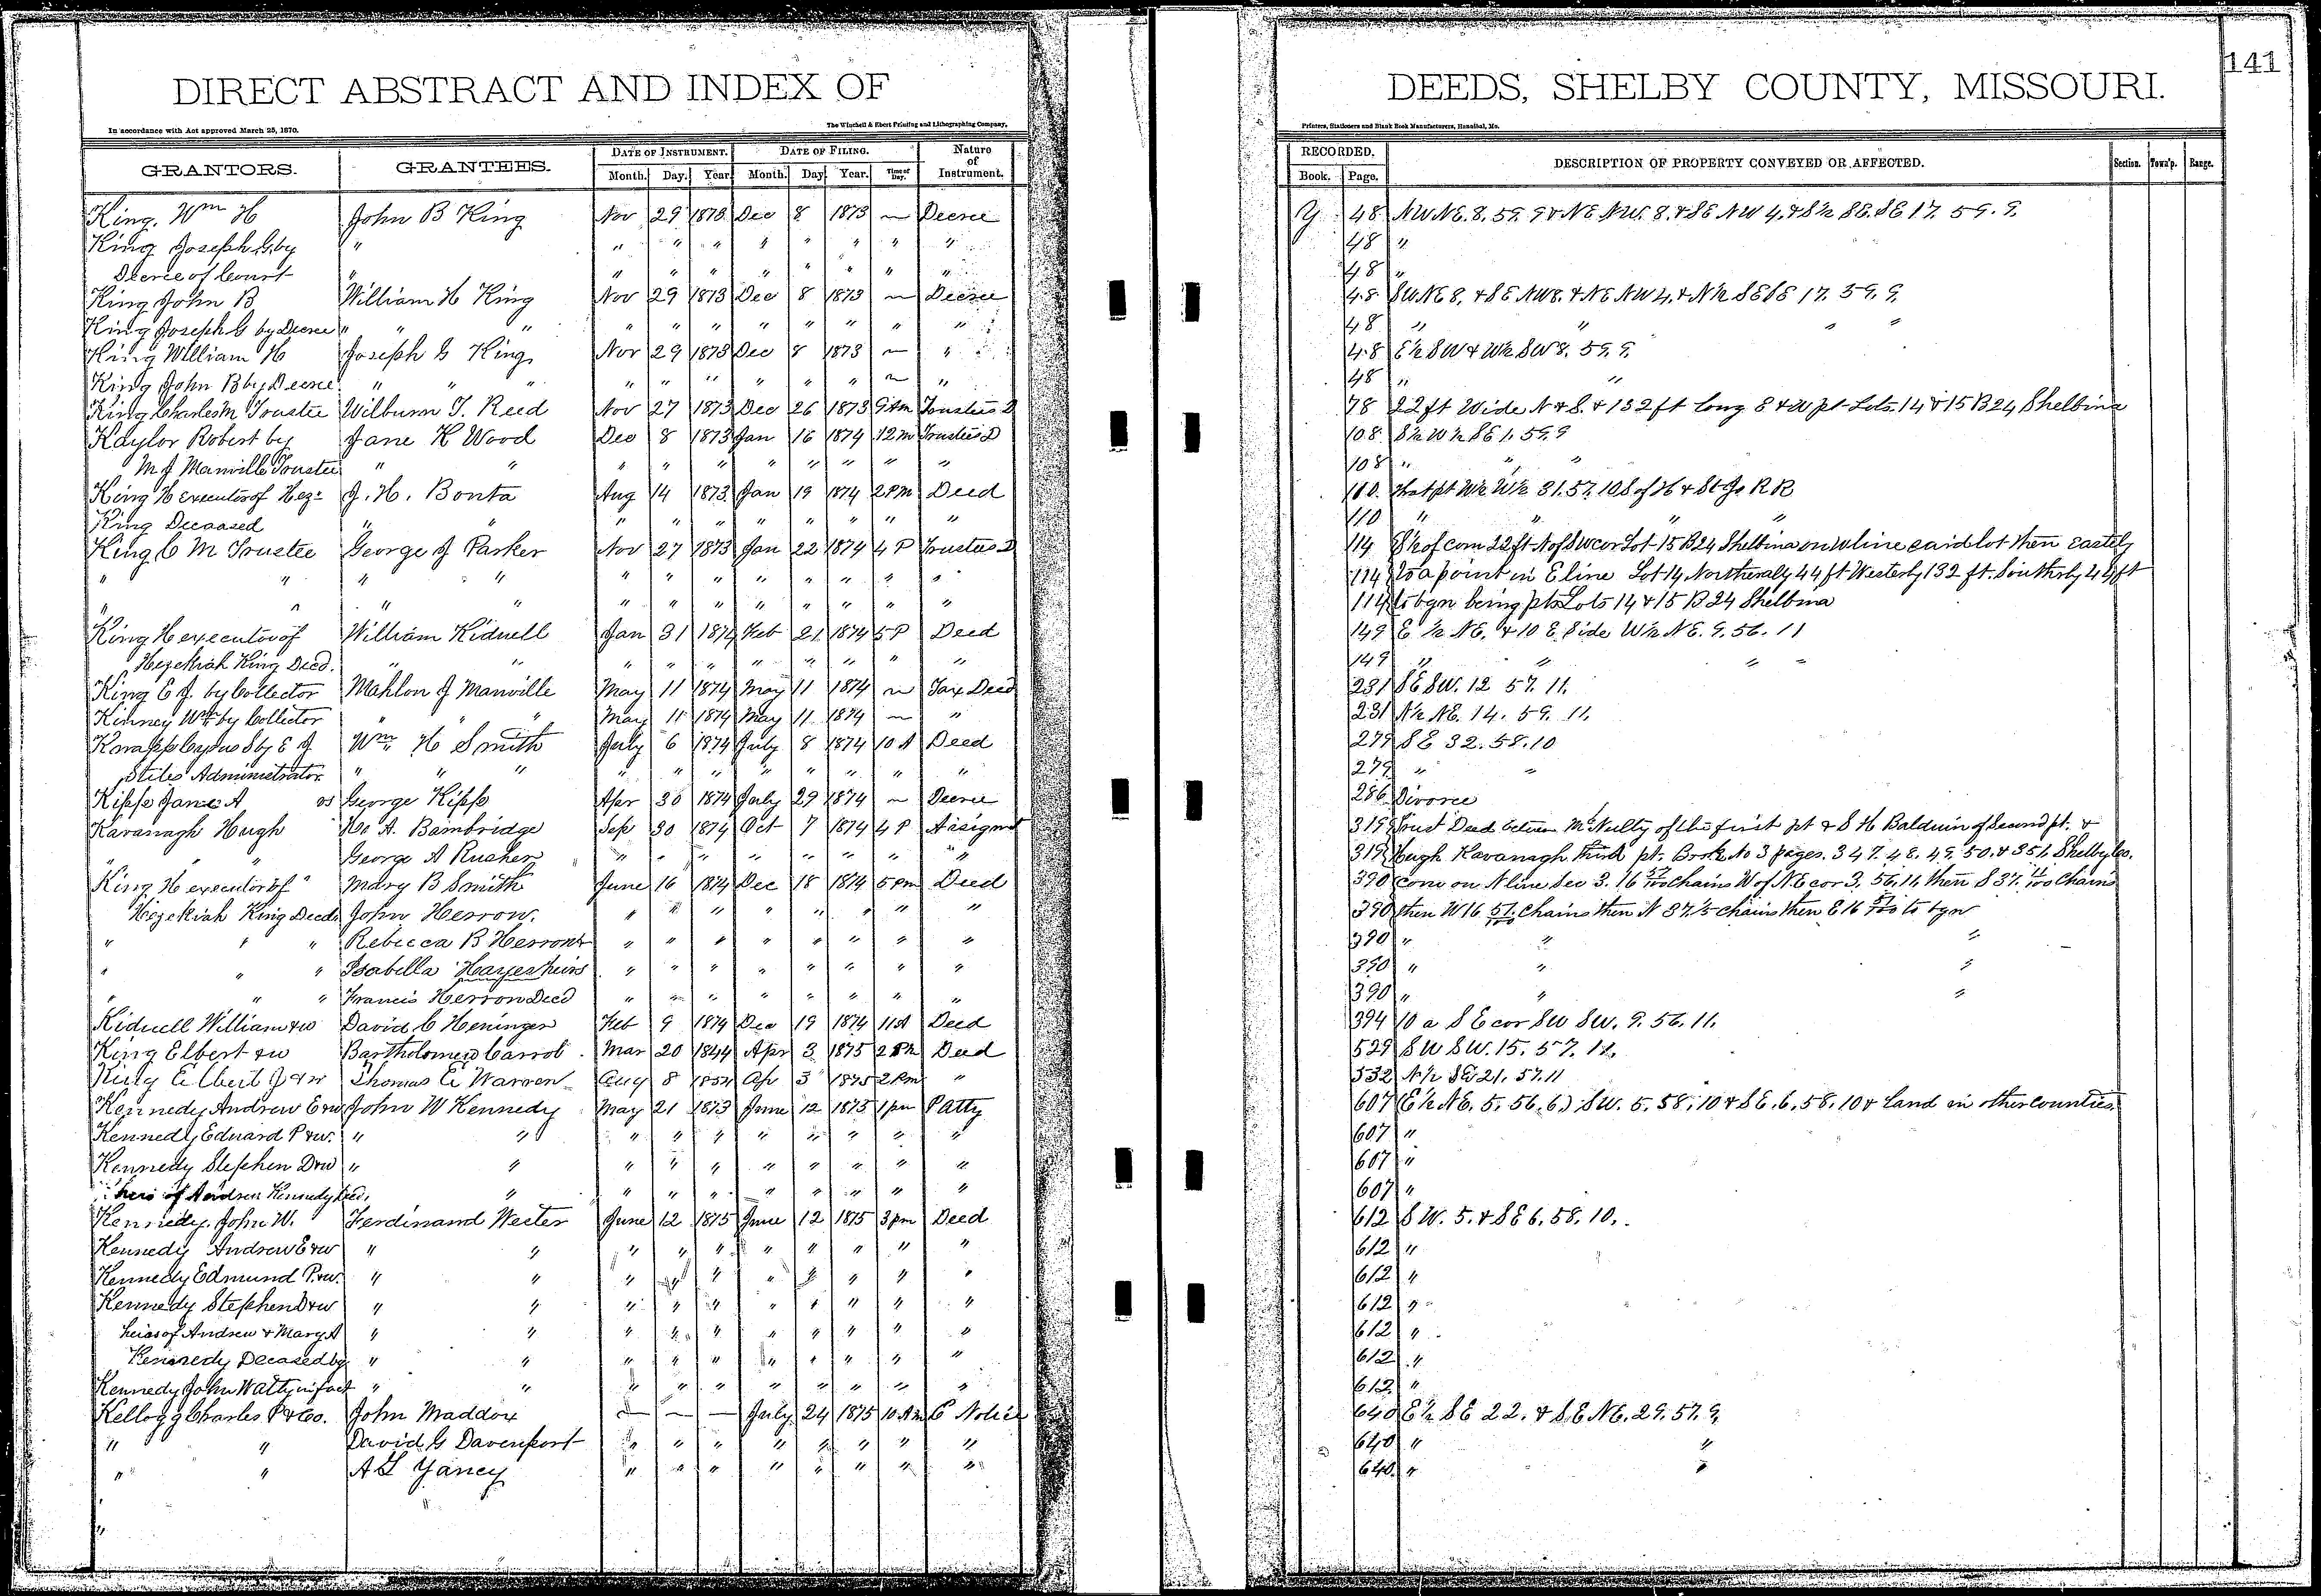 141
DIRECT ABSTRACT AND INDEX OF DEEDS, SHELBY COUNTY, MISSOURI.
In accordance with Act approved March 25, 1870. The Winchell & Ebert Printing and Lithographing Company, Printers, Stationers and Blank Book Manufacturers, Hannibal, Mo.
GRANTORS. GRANTEES. DATE OF INSTRUMENT. DATE OF FILING. Nature of Instrument. RECORDED. DESCRIPTION OF PROPERTY CONVEYED OR AFFECTED. Section. Town'p. Range.
Month. Day. Year. Month. Day. Year. Time of Day. Book. Page.
King, Wm H John B King Nov 29 1873 Dec 8 1873 — Decree Y 48 NW NE. 8. 59. 9 & NE NW. 8. & SE NW 4. & S½ SE. SE 17. 59. 9.
King Joseph G by " " " " " " " " " 48 "
Decree of Court " " " " " " " " " 48 "
King John B William H King Nov 29 1873 Dec 8 1873 — Decree 48 SW NE 8. & SE NW 8. & NE NW 4. & N½ SE SE 17. 59. 9.
King Joseph G by Decree " " " " " " " " " " " 48 " " " "
King William H Joseph G King Nov 29 1873 Dec 8 1873 — " 48 E½ SW & W½ SW 8. 59. 9.
King John B by Decree " " " " " " " " " — " 48 " "
King Charles M Trustee Wilburn T. Reed Nov 27 1873 Dec 26 1873 9 Am Trustees D 78 22 ft Wide N & S. & 132 ft long E & W pt Lots. 14 & 15 B 24 Shelbina
Kaylor Robert by Jane K Wood Dec 8 1873 Jan 16 1874 12 m Trustees D 108 S½ W½ SE 1. 59. 9
M J Manville Trustee " " " " " " " " " " 108 " " "
King H executor of Hez: J. H. Bonta Aug 14 1873 Jan 19 1874 2 PM Deed 110. That pt W½ W½ 31. 57. 10 S of H & St Jo R R
King Deceased " " " " " " " " " " 110 " " " "
King C M Trustee George J Parker Nov 27 1873 Jan 22 1874 4 P Trustees D 114 S½ of com 22 ft N of SW cor Lot 15 B 24 Shelbina on W line said lot then Eastely
" " " " " " " " " " " " 114 to a point in E line Lot 14 Northeraly 44 ft Westerly 132 ft. Southerly 44 ft
" " " " " " " " " " " " 114 to bgn being pts Lots 14 & 15 B 24 Shelbina
King H executor of William Kidwell Jan 31 1874 Feb 21 1874 5 P Deed 149 E ½ NE. & 10 E. Side W½ NE. 9. 56. 11
Hezekiah King Decd. " " " " " " " " " " 149 " " " "
King E J. by Collector Mahlon J Manville May 11 1874 May 11 1874 — Tax Deed 231 SE SW. 12 57. 11.
Kinney Wm by Collector " " " May 11 1874 May 11 1874 — " 231 N½ NE. 14. 59. 11.
Knapp Cyrus S by E J Wm H Smith July 6 1874 July 8 1874 10 A Deed 279 SE 32. 58. 10
Stiles Administrator. " " " " " " " " " " " 279 " "
Kipp Jane A vs George Kipp Apr 30 1874 July 29 1874 — Decree 286 Divorce
Kavanagh Hugh A. Bambridge Sep 30 1874 Oct 7 1874 4 P Assignmt 319 Trust Deed between McNulty of the first pt & S H Balduin of Second pt. &
" " George A Rusher " " " " " " " " 319 Hugh Kavanagh third pt. Book No 3 pages. 347. 48. 49. 50. & 351. Shelby Co.
King H executor of Mary B Smith June 16 1874 Dec 18 1874 5 pm Deed 390 Com on N line Sec 3. 16 57/100 Chains W of NE cor 3. 56. 11, then S 37. Chains
Hezekiah King Decd John Herron. " " " " " " " " 390 then W 16 57/100 Chains then N 37.½ chains then E 16 57/100 to bgn
" " " Rebecca B Herron & " " " " " " " " 390 " " "
" " " Isabella Hayes heirs " " " " " " " " 390 " " "
" " " Francis Herron Decd " " " " " " " " 390 " " "
Kidwell William & w David C Heninger Feb 9 1874 Dec 19 1874 11 A Deed 394 10 a SE cor SW SW. 9. 56. 11.
King Elbert & w Bartholomew Carrol Mar 20 1844 Apr 3 1875 2 Pm Deed 529 SW SW. 15. 57. 12.
King Elbert J & w Thomas E Warren Aug 8 1854 Ap 3 1875 2 Pm " 532 N½ SE 21. 57. 11
Kennedy Andrew E & w John W Kennedy May 21 1873 June 12 1875 1 pm P Atty 607 (E½ NE. 5. 56. 6.) SW. 5. 58. 10 & SE. 6. 58. 10 & land in other counties.
Kennedy Edward P & w. " " " " " " " " " " 607 "
Kennedy Stephen D & w " " " " " " " " " " 607 "
heirs of Andrew Kennedy Decd. " " " " " " " " " 607 "
Kennedy. John W. Ferdinand Wester June 12 1875 June 12 1875 3 pm Deed 612 SW. 5. & SE 6. 58. 10.
Kennedy Andrew E & w " " " " " " " " " " 612 "
Kennedy Edmund P. & w. " " " " " " " " " " 612 "
Kennedy Stephen D & w " " " " " " " " " " 612 "
heirs of Andrew & Mary A " " " " " " " " " " 612 "
Kennedy Deceased by " " " " " " " " " " 612 "
Kennedy John W atty in fact " " " " " " " " " " 612 "
Kellogg Charles P & Co. John Maddox — — — July 24 1875 10 Am C Notice 640 E½ SE 22. & SE NE. 29. 57. 9.
" " David G Davenport " " " " " " " " 640 " "
" " A L Yancy " " " " " " " " 640 " "